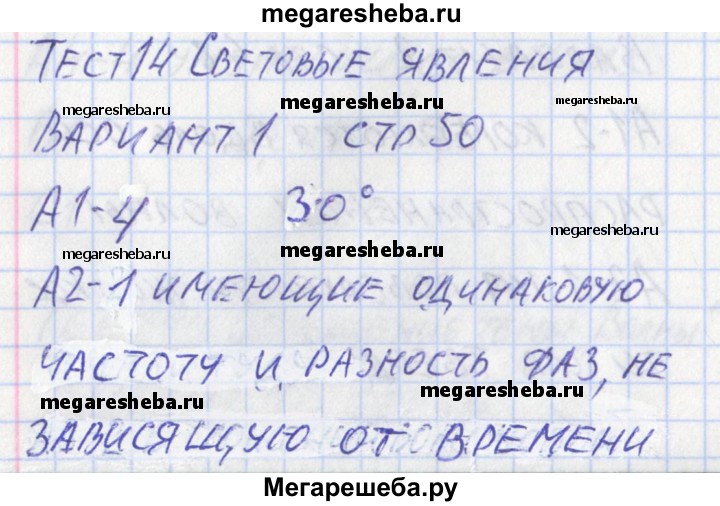 megaresheba.ru
ТЕСТ 14 СВЕТОВЫЕ ЯВЛЕНИЯ
megaresheba.ru megaresheba.ru megaresheba.ru
ВАРИАНТ 1 СТР 50
А1-4 30°
megaresheba.ru megaresheba.ru megaresheba.ru
А2-1 ИМЕЮЩИЕ ОДИНАКОВУЮ
ЧАСТОТУ И РАЗНОСТЬ ФАЗ, НЕ
megaresheba.ru megaresheba.ru
ЗАВИСЯЩУЮ ОТ ВРЕМЕНИ
Мегарешеба.ру